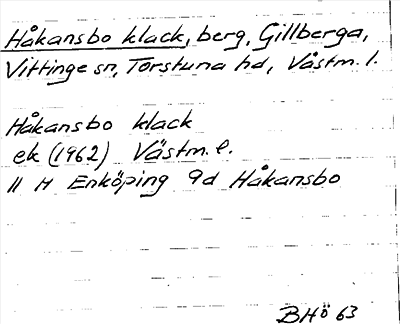 Håkansbo klack, berg, Gillberga,
Vittinge sn, Torstuna hd, Västm. l.
Håkansbo klack
ek (1962) Västm. l.
11 H Enköping 9d Håkansbo
BHö 63